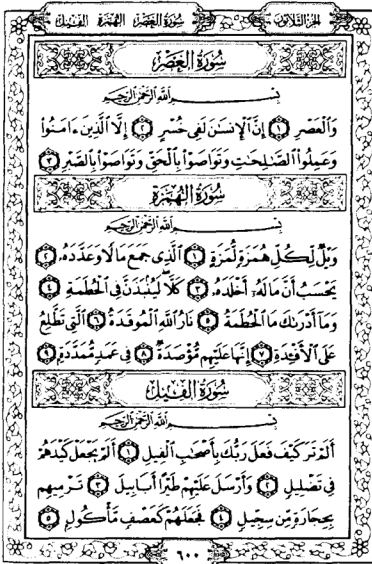 سُورَةُ العَصْرِ الهُمَزَةِ الفِيلِ
الجُزْءُ الثَّلَاثُونَ
سُورَةُ العَصْرِ
بِسْمِ ٱللَّهِ ٱلرَّحْمَٰنِ ٱلرَّحِيمِ
وَٱلْعَصْرِ ١ إِنَّ ٱلْإِنسَٰنَ لَفِى خُسْرٍ ٢ إِلَّا ٱلَّذِينَ ءَامَنُوا۟
وَعَمِلُوا۟ ٱلصَّٰلِحَٰتِ وَتَوَاصَوْا۟ بِٱلْحَقِّ وَتَوَاصَوْا۟ بِٱلصَّبْرِ ٣
سُورَةُ الهُمَزَةِ
بِسْمِ ٱللَّهِ ٱلرَّحْمَٰنِ ٱلرَّحِيمِ
وَيْلٌ لِّكُلِّ هُمَزَةٍ لُّمَزَةٍ ١ ٱلَّذِى جَمَعَ مَالًا وَعَدَّدَهُۥ ٢
يَحْسَبُ أَنَّ مَالَهُۥٓ أَخْلَدَهُۥ ٣ كَلَّا لَيُنۢبَذَنَّ فِى ٱلْحُطَمَةِ ٤
وَمَآ أَدْرَىٰكَ مَا ٱلْحُطَمَةُ ٥ نَارُ ٱللَّهِ ٱلْمُوقَدَةُ ٦ ٱلَّتِى تَطَّلِعُ
عَلَى ٱلْأَفْـِٔدَةِ ٧ إِنَّهَا عَلَيْهِم مُّؤْصَدَةٌ ٨ فِى عَمَدٍ مُّمَدَّدَةٍۭ ٩
سُورَةُ الفِيلِ
بِسْمِ ٱللَّهِ ٱلرَّحْمَٰنِ ٱلرَّحِيمِ
أَلَمْ تَرَ كَيْفَ فَعَلَ رَبُّكَ بِأَصْحَٰبِ ٱلْفِيلِ ١ أَلَمْ يَجْعَلْ كَيْدَهُمْ
فِى تَضْلِيلٍ ٢ وَأَرْسَلَ عَلَيْهِمْ طَيْرًا أَبَابِيلَ ٣ تَرْمِيهِم
بِحِجَارَةٍ مِّن سِجِّيلٍ ٤ فَجَعَلَهُمْ كَعَصْفٍ مَّأْكُولٍۭ ٥
٦٠٠